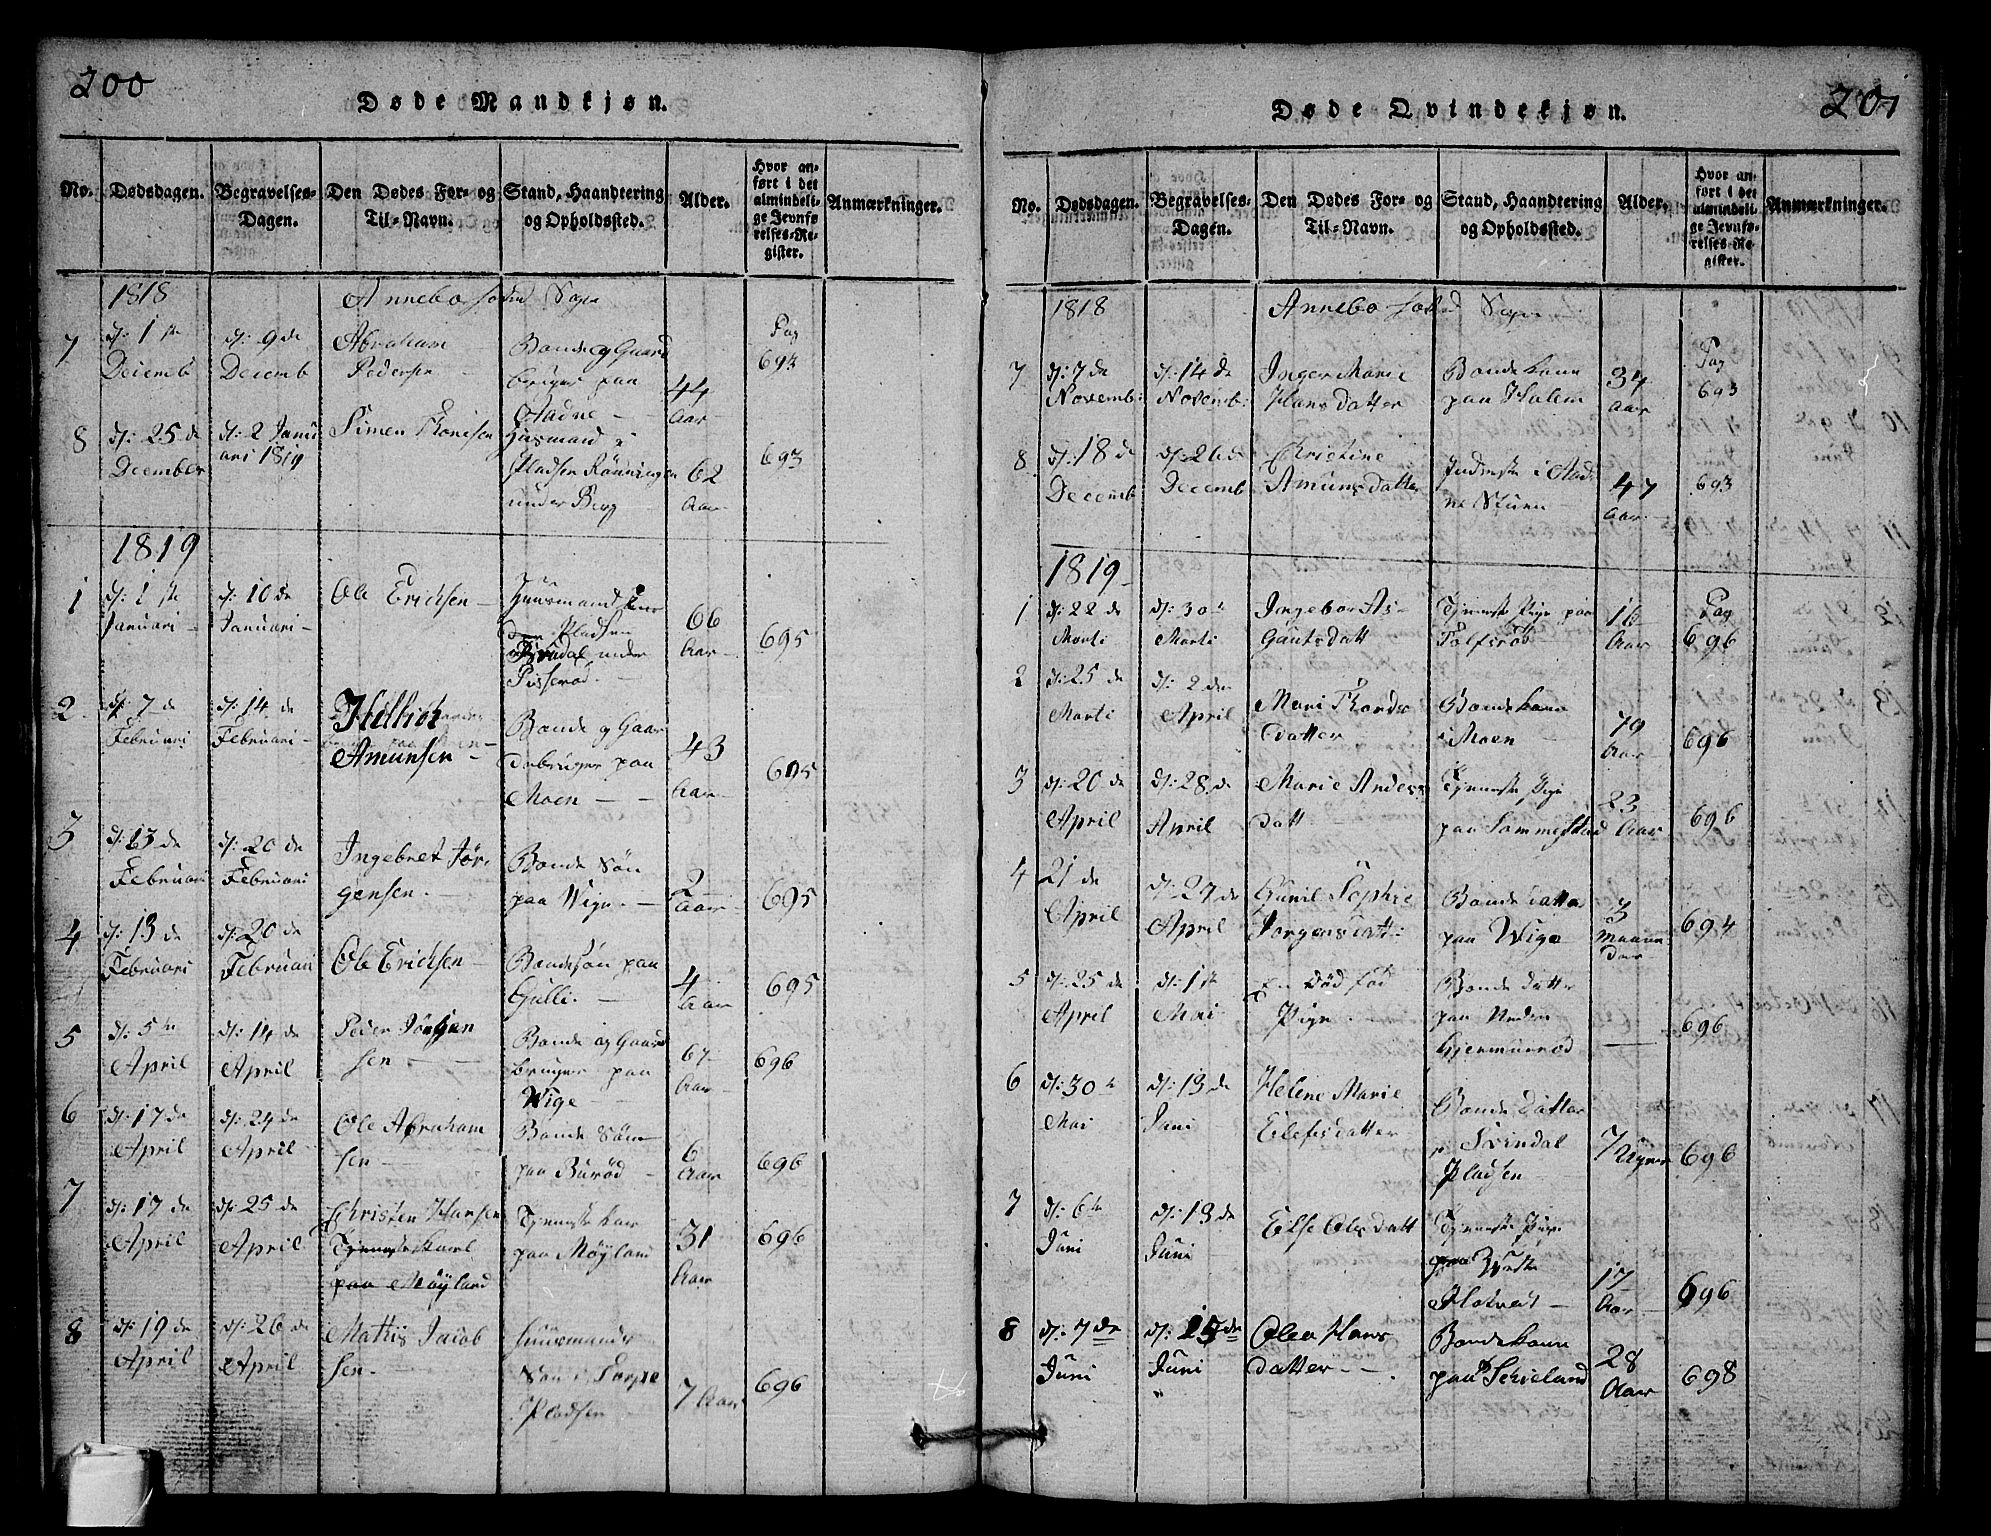 200
Døde Mandkjøn.
No.
Dødsdagen.
Begravelses-
Dagen.
Den Dødes For- og
Til-Navn.
Stand, Haandtering
og Opholdssted.
Alder.
Hvor an-
ført i det
almindeli-
ge Jevnfø-
relses-Re-
gister.
Anmærkninger.
1818
Annebo Sogn
7
d: 1 ste
Decemb
d: 9 de
Decemb
Abraham
Pedersen
Bonde og Gaard
bruger paa
Aadne
44
Aar
Pag
694
8
d: 25 de
December
d: 2 Janu
ari 1819
Simen
Huusmand i
Pladsen Rönningen
under Berg
62
Aar
693
1819
1
d: 1 ste
Januari
d: 10 de
Januari
Ole Erichsen
Huusmand
Pladsen
under
66
Aar
695
2
d: 7 de
Februari
d: 14 de
Februari
Amunsen
Bonde og Gaar
debruger paa
Moen
43
Aar
695
3
d: 13 de
Februari
d: 20 de
Februari
Ingebret Jör-
gensen
Bonde Sön
paa Wige
2
Aar
695
4
d: 13 de
Februari
d: 20 de
Februari
Ole Erichsen
Bondesön paa
Gulli
4
Aar
695
5
d: 5 te
April
d: 14 de
April
Peder
sen
Bonde og Gaard
bruger paa
Wige
67
Aar
696
6
d: 17 de
April
d: 24 de
April
Ole Abraham
sen
Bonde Sön
paa Buröd
6
Aar
696
7
d: 17 de
April
d: 25 de
April
Christen Hansen
Tjenestekarl
paa Möyland
Tjenestekar
paa Möyland
31
Aar
696
8
d: 19 de
April
d: 26 de
April
Mathis Jacob
sen
Huusmands
Sön i Torpe
Pladsen
7 Aar
696
201
Døde Qvindekjøn.
No.
Dødsdagen.
Begravelses-
Dagen.
Den Dødes For- og
Til-Navn.
Stand, Haandtering
og Opholdssted.
Alder.
Hvor an-
ført i det
almindeli-
ge Jevnfø-
relses-Re-
gister.
Anmærkninger.
1818
Annebo Sogn
7
d: 7 de
Novemb:
d: 14 de
Novemb:
Inger Marie
Hansdatter
Bondekone
paa Holem
34
Aar
Pag
693
8
d: 18 de
Decemb
d: 26 de
Decemb
Christine
Amunsdatter
Inderste i Aad
ne Stuen
47
Aar
693
1819
1
d: 22 de
Marti
d: 30 te
Marti
Ingebor As-
Gautsdatt
Tjeneste Pige paa
Tolfsröd
16
Aar
Pag
696
2
d: 25 de
Marti
d: 2 den
April
Mari Thords
datter
Bondekone
i Moen
79
Aar
696
3
d: 20 de
April
d: 28 de
April
Marie Anders
datt
Tjeneste Pige
paa Sommestad
23
Aar
696
4
21 de
April
d: 27 de
April
Gunil Sophie
Jorgensdatt:
Bondedatter
paa Wige
3
Maane
der
694
5
d: 25 de
April
d: 1 ste
Mai
En död föd
Pige
Bondedatter
paa Nedre
Gjermunröd
696
6
d: 30 te
Mai
d: 13 de
Juni
Helene Marie
Elefsdatter
Bondedatter
Svindal
Pladsen
7 Uger
696
7
d: 6 te
Juni
d: 13 de
Juni
Else Olsdatt
Tjeneste Pige
paa Westre
Holtvedt
17
Aar
696
8
d: 7 de
Juni
d: 15 de
Juni
"
Olea Hans
datter
Bondekone
paa Schieland
28
Aar
698